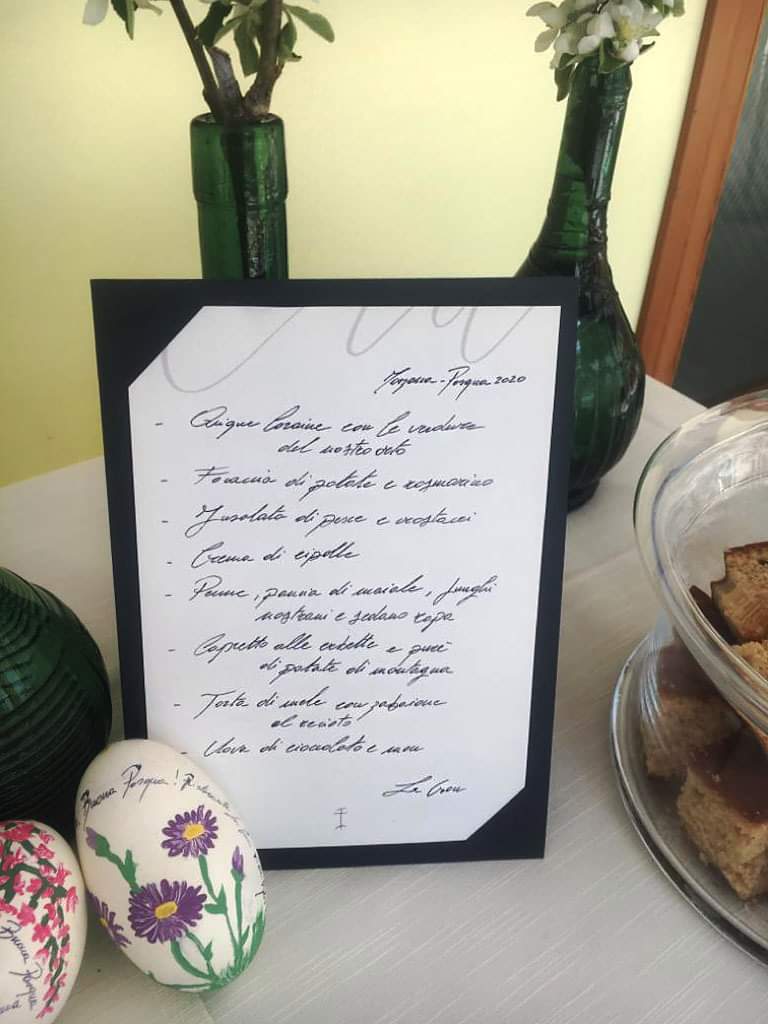 Pasqua 2020
- Quique Loraine con le verdure
del nostro orto
- Focaccia di patate e rosmarino
- Insalata di pesce e crostacei
- Crema di cipolle
- Penne, pancia di maiale, funghi
nostrani e sedano rapa
- Capretto alle erbette e purè
di patate di montagna
- Torta di mele con zabaione
al recioto
- Uova di cioccolato e non
Buona Pasqua!
Buona
Pasqua